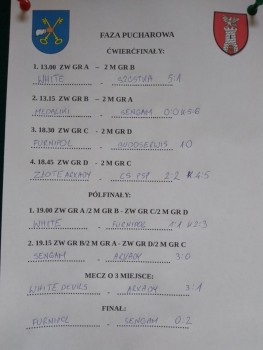 FAZA PUCHAROWA
ĆWIERĆFINAŁY:
1. 13.00 ZW GR A – 2 M GR B
WHITE - SZÓSTKA 5:1
2. 13.15 ZW GR B – 2 M GR A
MEDALIKI - SENGAM 0:0 K 5:6
3. 18.30 ZW GR C - 2 M GR D
FURNIPOL - WODSERWIS 1:0
4. 18.45 ZW GR D - 2 M GR C
ZŁOTE ARKADY - CS PSP 2:2 K 4:5
PÓŁFINAŁY:
1. 19.00 ZW GR A /2 M GR B - ZW GR C/2 M GR D
WHITE - FURNIPOL 1:1 K 2:3
2. 19.15 ZW GR B/2 M GR A - ZW GR D/2 M GR C
SENGAM - ARKADY 3:0
MECZ O 3 MIEJSCE:
WHITE DEVILS - ARKADY 3:1
FINAŁ:
FURNIPOL - SENGAM 0:2